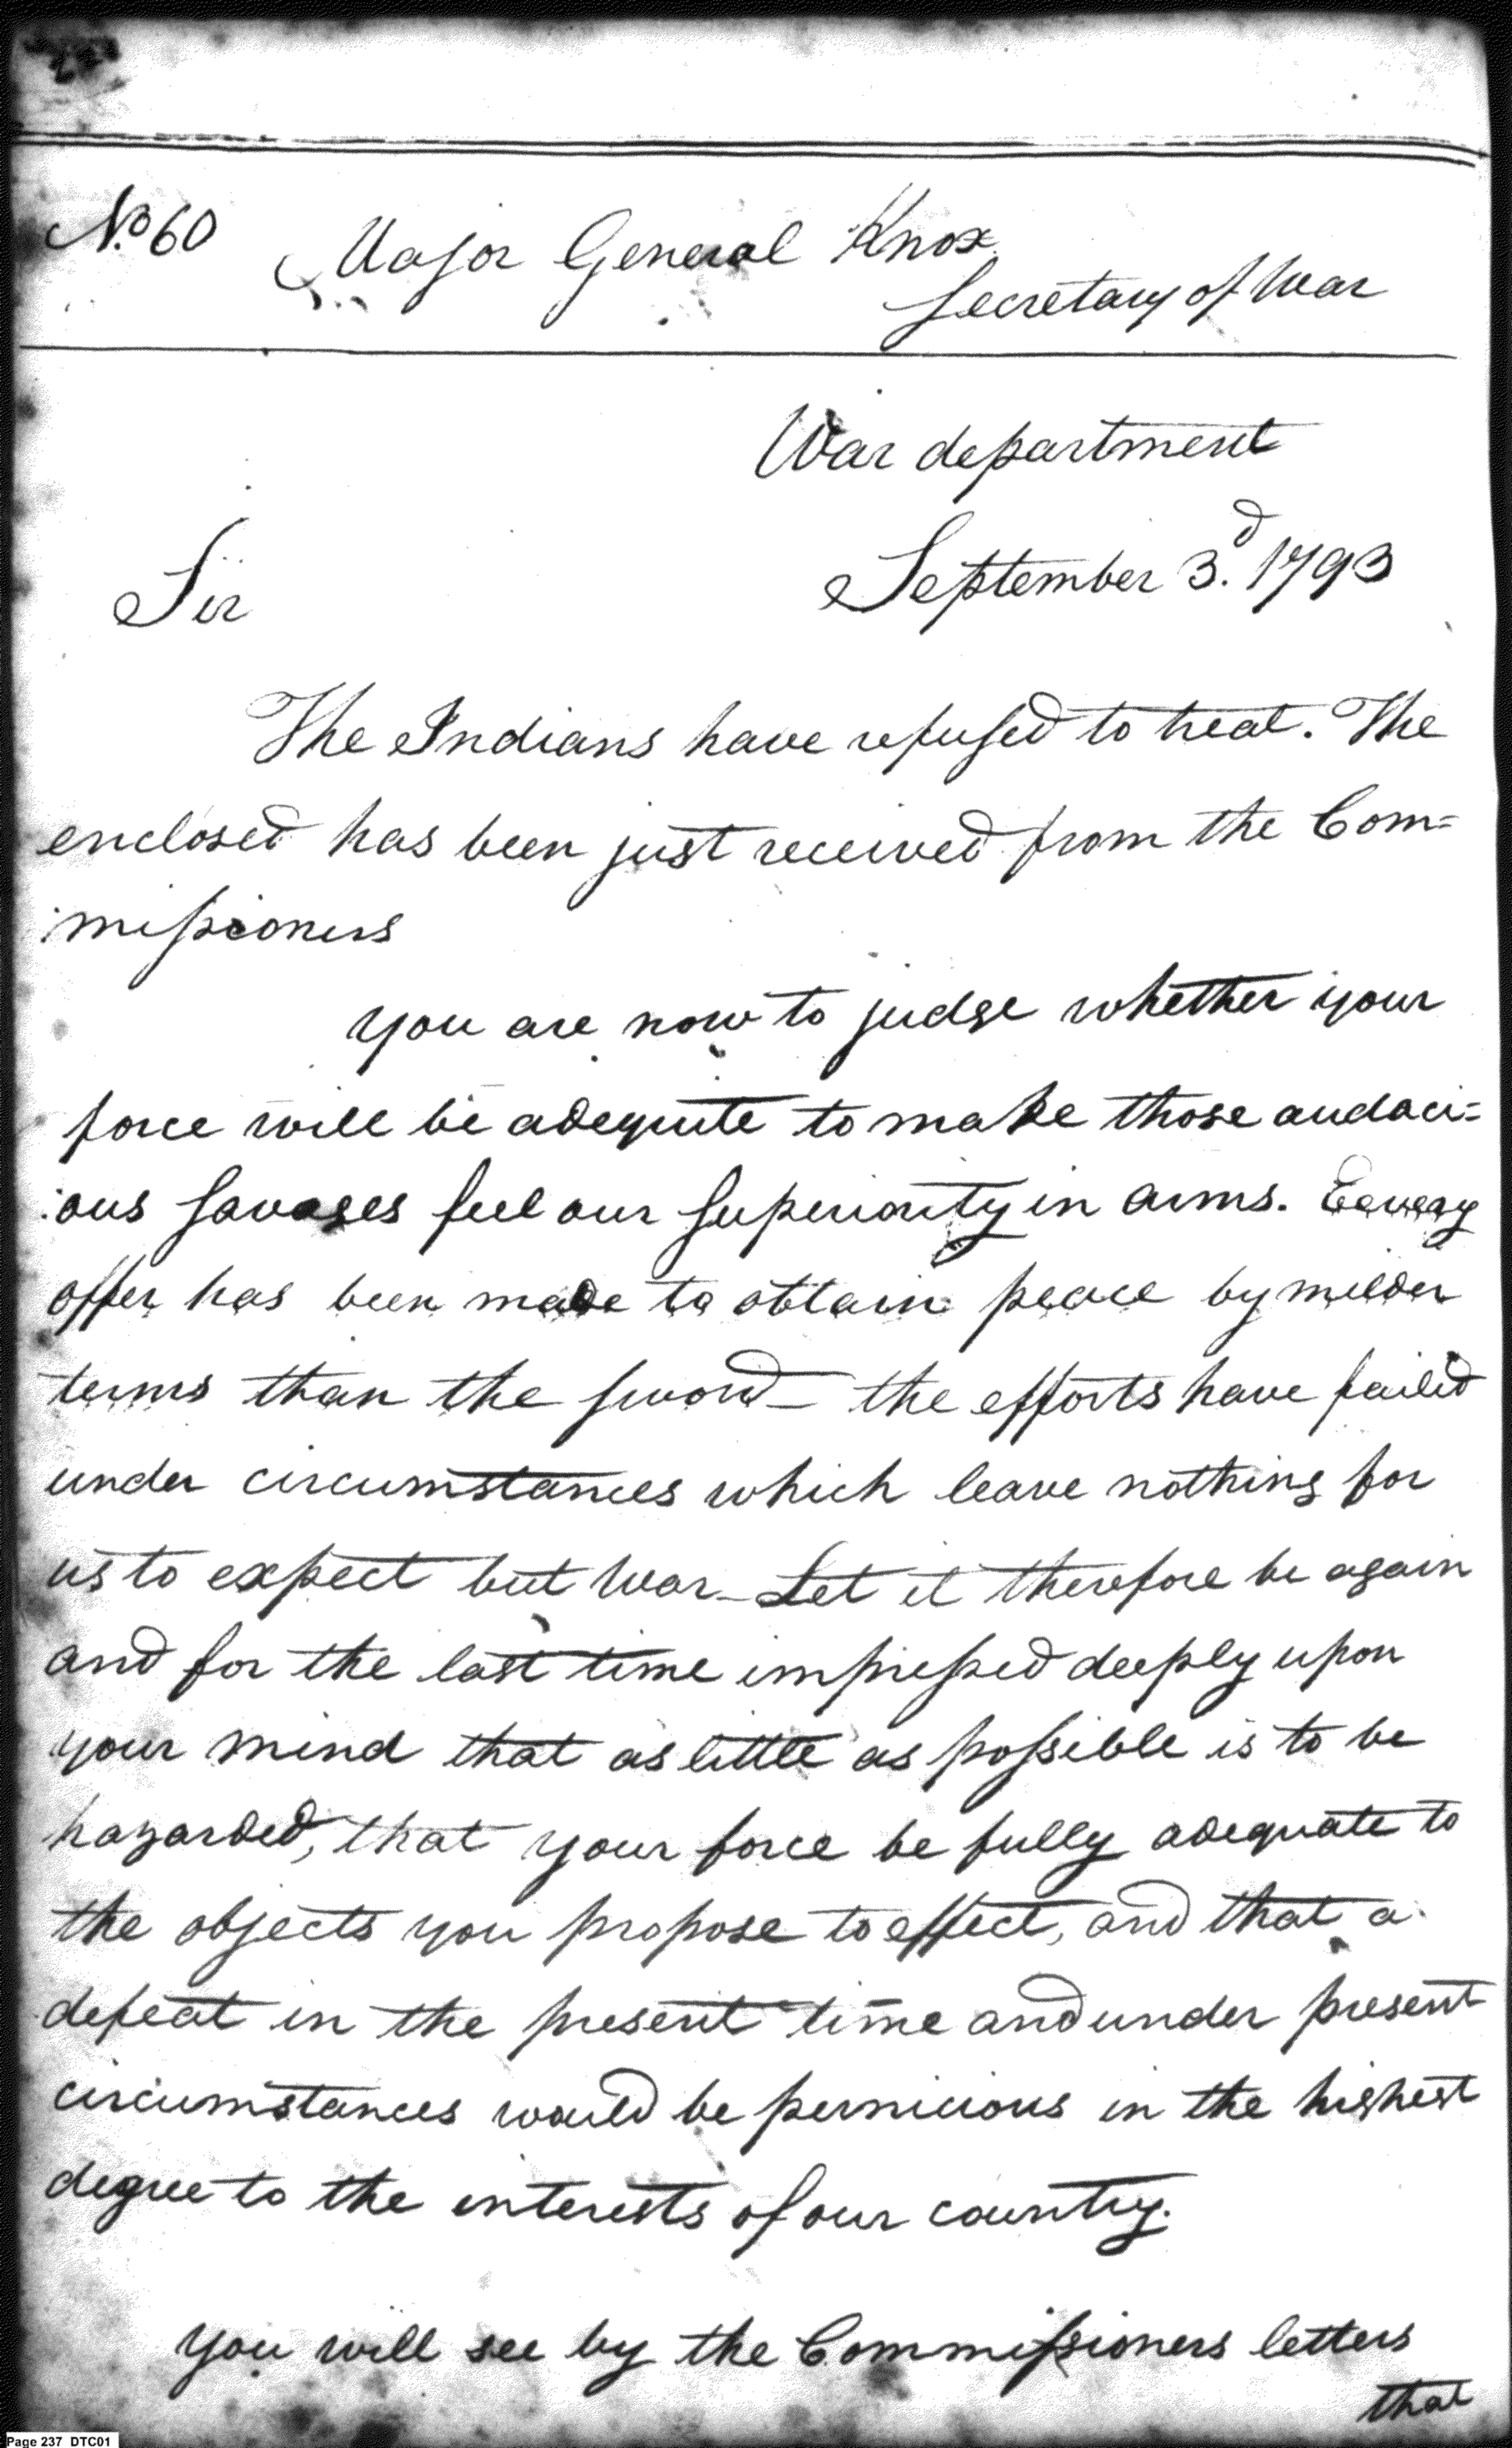 No. 60 Major General Knox
Secretary of War
War department
September 3.d 1793
Sir
The Indians have refused to treat. The
enclosed has been just received from the Com=
:missioners
you are now to judge whether your
force will be adequate to make those audaci=
:ous savages feel our superiority in arms. Eevery
offer has been made to obtain peace by milder
terms than the sword – the efforts have failed
under circumstances which leave nothing for
us to expect but war – Let it therefore be again
and for the last time impressed deeply upon
your mind that as little as possible is to be
hazarded, that your force be fully adequate to
the objects you propose to effect, and that a
defeat in the present time and under present
circumstances would be pernicious in the highest
degree to the interests of our country.
You will see by the Commissioners letters
that
Page 237 DTC01